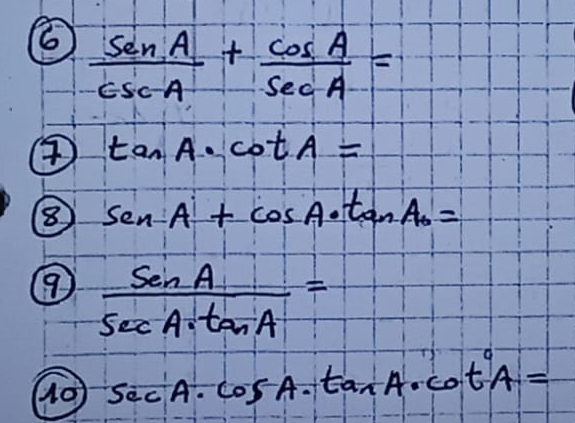 ⑥ sen A / csc A + cos A / sec A =
⑦ tan A . cot A =
⑧ sen A + cos A . tan A =
⑨ sen A / sec A . tan A =
⑩ sec A . cos A . tan A . cot A =